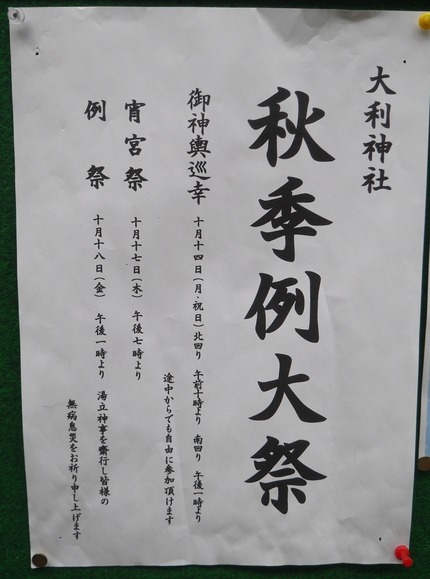 大利神社
秋季例大祭
御神輿巡幸 十月十四日(月・祝日)北回り 午前十時より 南回り 午後一時より
途中からでも自由に参加頂けます
宵宮祭 十月十七日(木) 午後七時より
例祭 十月十八日(金) 午後一時より 湯立神事を齋行し皆様の
無病息災をお祈り申し上げます